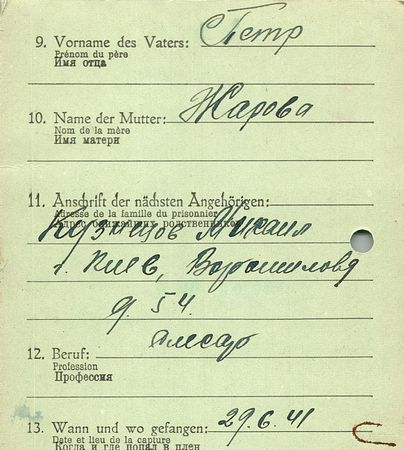 9. Vorname des Vaters: Петр
Prénom du père
Имя отца
10. Name der Mutter: Жарова
Nom de la mère
Имя матери
11. Anschrift der nächsten Angehörigen:
Adresse de la famille du prisonnier
Адрес ближайших родственников
Кузнецов Михаил
г. Киев, Ворошилова
д. 54.
12. Beruf: слесарь
Profession
Профессия
13. Wann und wo gefangen: 29.6.41
Date et lieu de la capture
Когда и где попал в плен